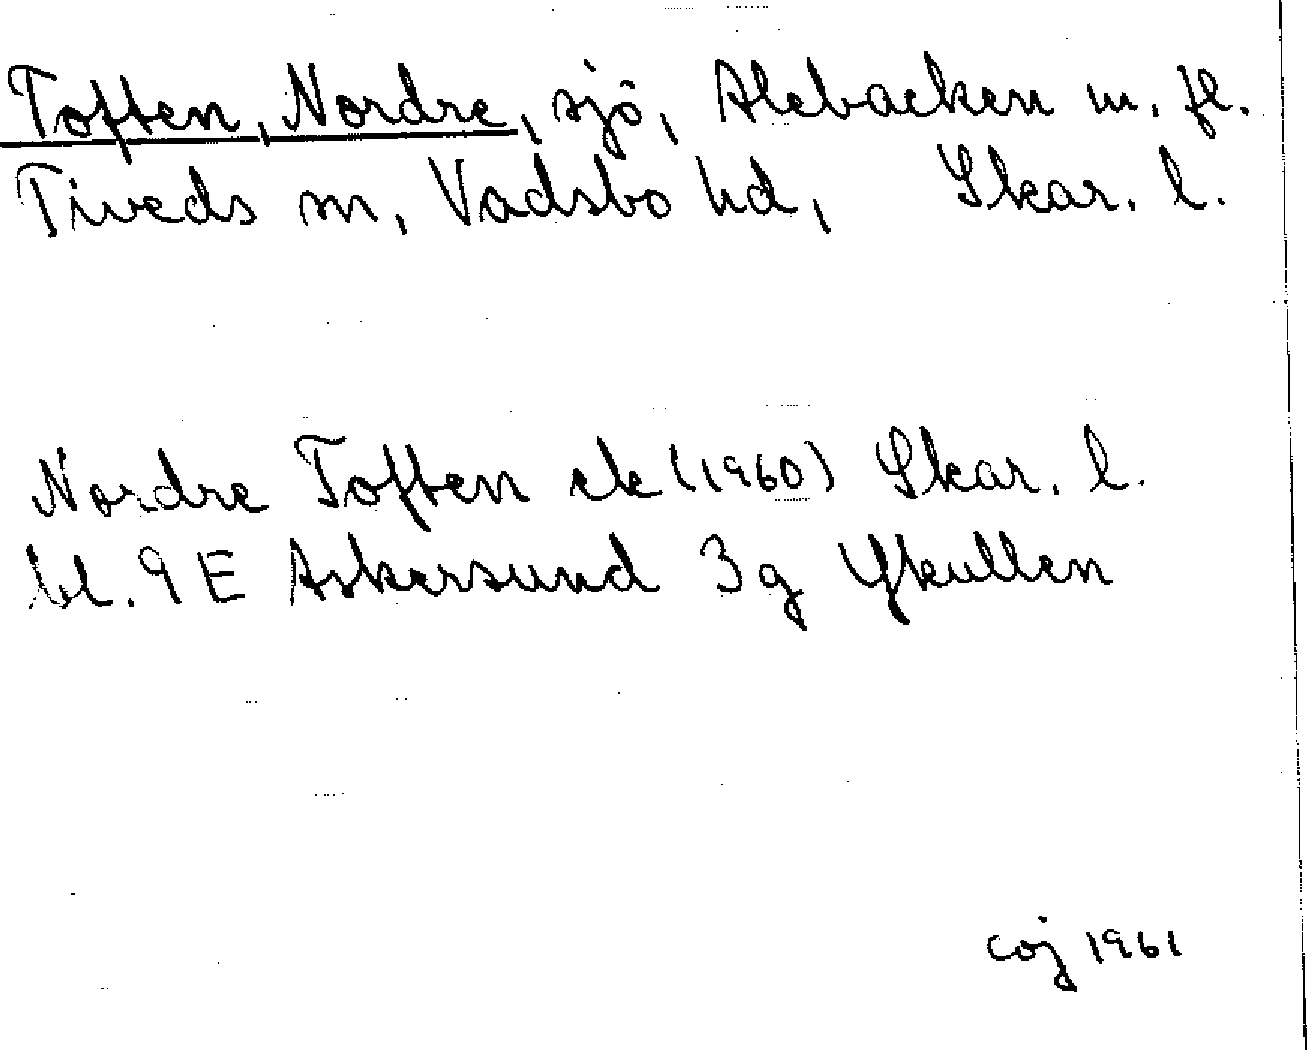 Toften, Nordre, sjö, Alebacken m. fl.
Tiveds sn, Vadsbo hd, Skar. l.
Nordre Toften ek (1960) Skar. l.
bl. 9 E Askersund 3g Ykullen
coj 1961